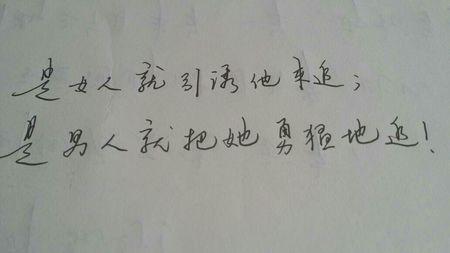 是女人就引诱他来追；
是男人就把她勇猛地追！